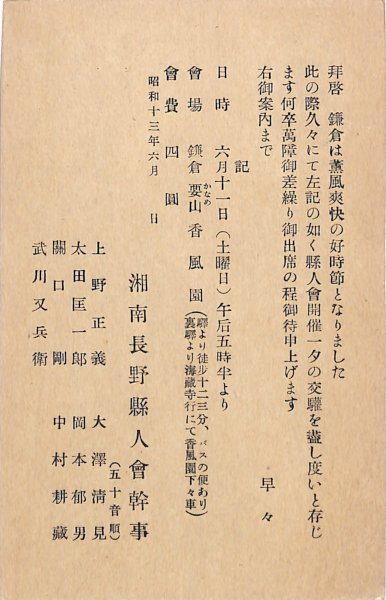 拝啓　鎌倉は薫風爽快の好時節となりました
此の際久々にて左記の如く縣人會開催一夕の交驩を盡し度いと存じ
ます何卒萬障御差繰り御出席の程御待申上げます
右御案内まで
早々
記
日時　六月十一日（土曜日）午后五時半より
會場　鎌倉要山香風園（驛より徒歩十二三分、バスの便あり
かなめ
裏驛より海藏寺行にて香風園下々車）
會費　四圓
昭和十三年六月　日
湘南長野縣人會幹事
（五十音順）
上野正義　大澤清見
太田匡一郎　岡本郁男
關口剛　中村耕藏
武川又兵衛